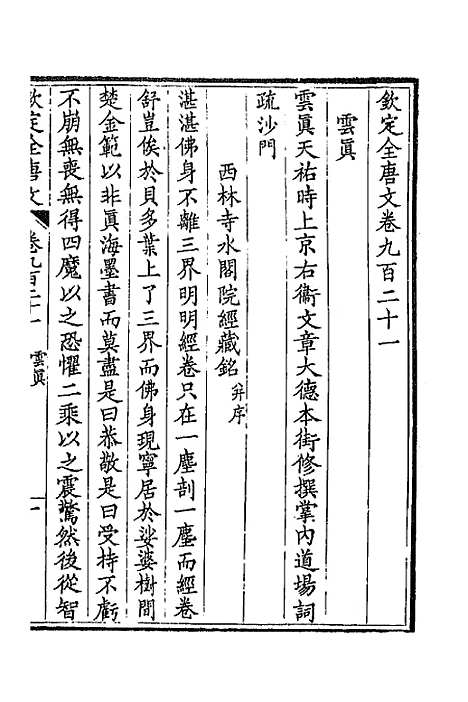 欽定全唐文卷九百二十一
雲眞
雲眞天祐時上京右衞文章大德本街修撰掌內道場詞
疏沙門
西林寺水閣院經藏銘 幷序
湛湛佛身不離三界明明經卷只在一塵剖一塵而經卷
舒豈俟於貝多葉上了三界而佛身現寧居於娑婆樹間
楚金範以非眞海墨書而莫盡是曰恭敬是曰受持不虧
不崩無喪無得四魔以之恐懼二乘以之震驚然後從智
欽定全唐文 卷九百二十一 雲眞 一